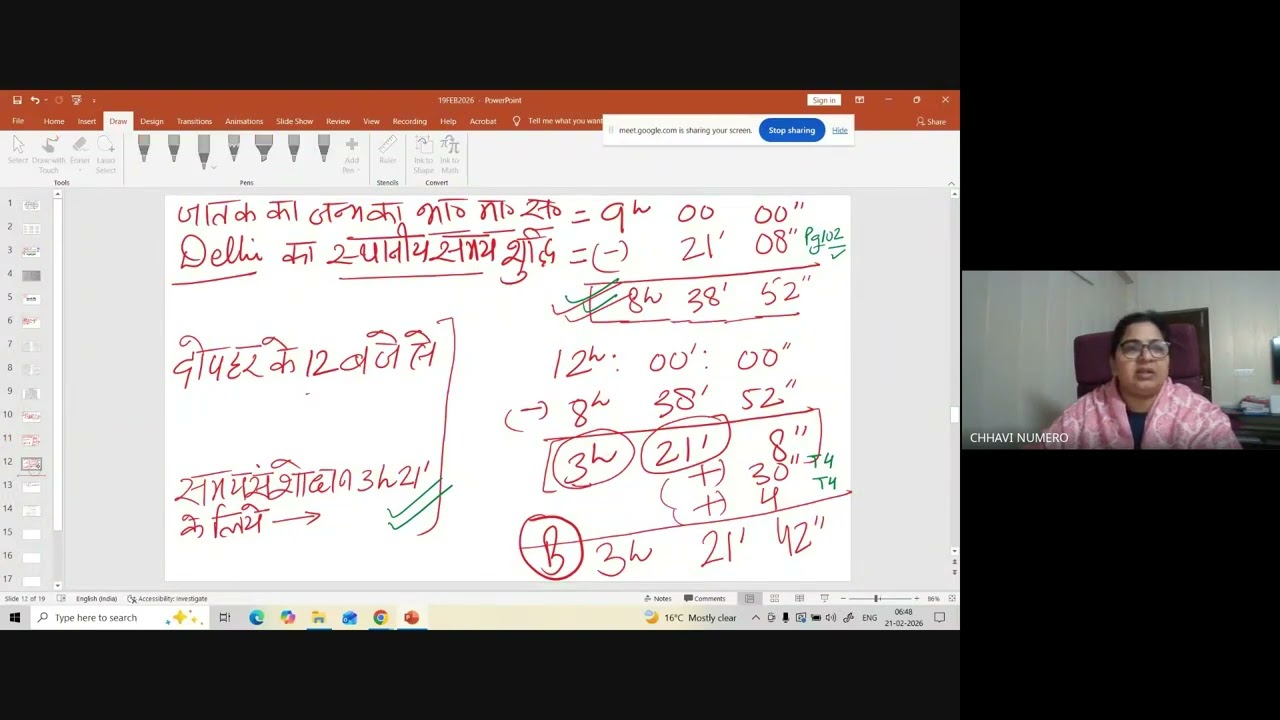 19FEB2026 - PowerPoint
Sign in
File Home Insert Draw Design Transitions Animations Slide Show Review View Recording Help Acrobat Tell me what you want
meet.google.com is sharing your screen. Stop sharing Hide
Share
Select Draw with Touch Eraser Lasso Select Add Pen Ruler Ink to Shape Ink to Math
Tools Pens Stencils Convert
जातक का जन्म का भा० मा० स० = 9h 00 00"
Delhi का स्थानीय समय शुद्धि = (-) 21' 08" Pg102
8h 38' 52"
दोपहर के 12 बजे से 12h: 00': 00"
(-) 8h 38' 52"
3h 21' 8"
समय संशोधन 3h21' (+) 30" T4
के लिये → (+) 4 T4
B 3h 21' 42"
1
2
3
4
5
6
7
8
9
10
11
12
13
14
15
16
17
CHHAVI NUMERO
Slide 12 of 19 English (India) Accessibility: Investigate Notes Comments 96%
Type here to search 16°C Mostly clear ENG 06:48
21-02-2026